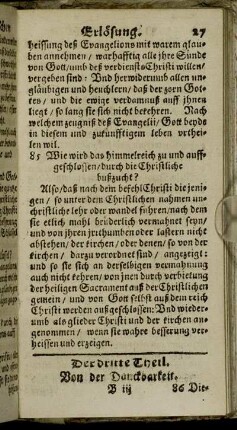 Erlösung. 27
heissung deß Evangelions mit warem glau-
ben annehmen / warhafftig alle jhre Sünde
von Gott / umb deß verdiensts Christi willen /
vergeben sind: Und herwiderumb allen un-
gläubigen und heuchlern / daß der zorn Got-
tes / und die ewige verdamnuß auff jhnen
liegt / so lang sie sich nicht bekehren. Nach
welchem zeugniß deß Evangelij Gott beyds
in diesem und zukünfftigem leben urthei-
len wil.
85 Wie wird das himmelreich zu und auff-
geschlossen / durch die Christliche
bußzucht?
Also / daß nach dem befehl Christi die jeni-
gen / so unter dem Christlichen nahmen un-
christliche lehr oder wandel führen / nach dem
sie etlich mahl brüderlich vermahnet seyn /
und von jhren jrrthumben oder lastern nicht
abstehen / der kirchen / oder denen / so von der
kirchen / darzu verordnet sind / angezeigt:
und so sie sich an derselbigen vermahnung
auch nicht kehren / von jnen durch verbietung
der heiligen Sacrament auß der Christlichen
gemein / und von Gott selbst auß dem reich
Christi werden außgeschlossen: Und wieder-
umb als glieder Christi und der kirchen an-
genommen / wenn sie wahre besserung ver-
heissen und erzeigen.
Der dritte Theil.
Von der Danckbarkeit.
B iij 86 Die-